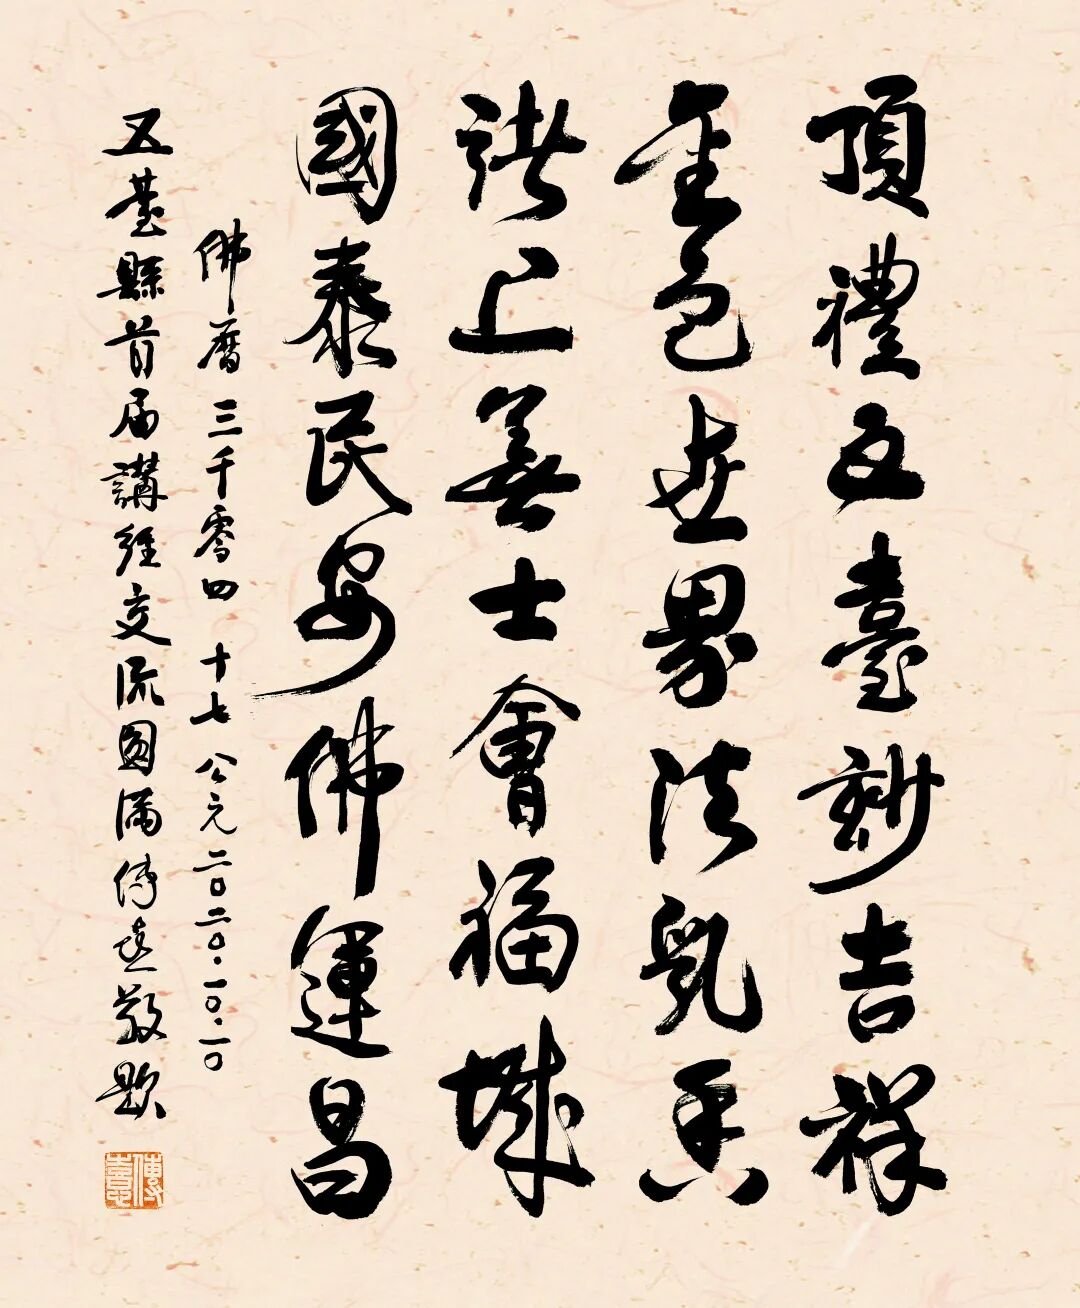 頂禮五臺妙吉祥
金色世界法乳香
諸上善士會福城
國泰民安佛運昌
佛曆三千零四十七公元二〇二〇.一〇.一〇
五臺縣首届講經交流圓滿傳喜敬題
傳喜